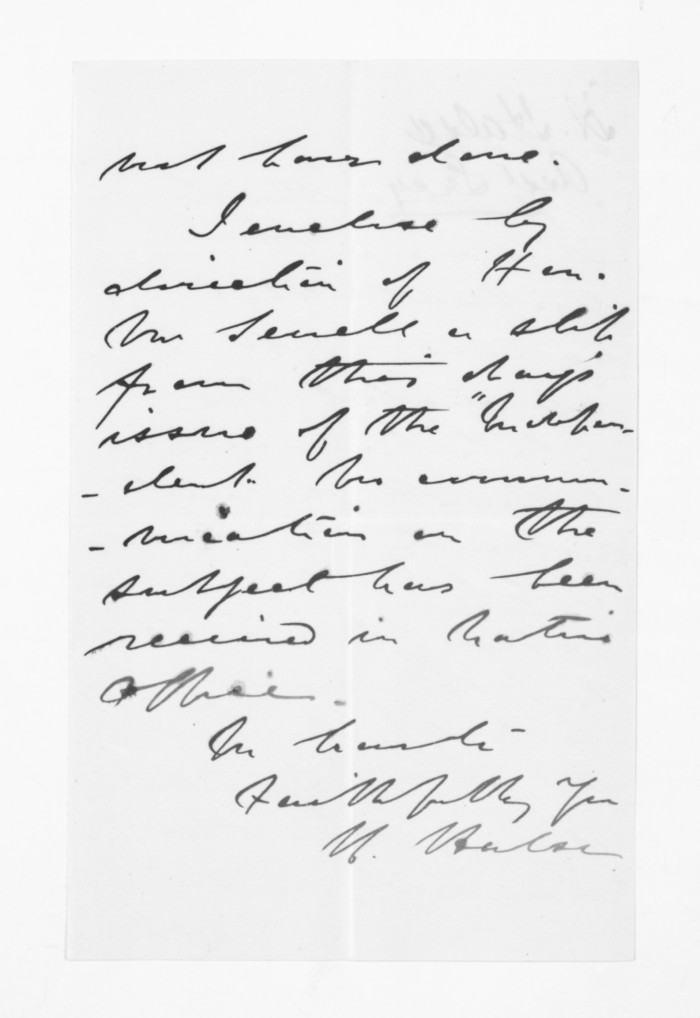 not have done.
I enclose by
direction of Hon.
Mr Sewell a slip
from this day's
issue of the "Indepen-
-dent. No commu-
-nication on the
subject has been
received in Native
Office.
In haste
Faithfully Yrs
H. Halse
H. Halse